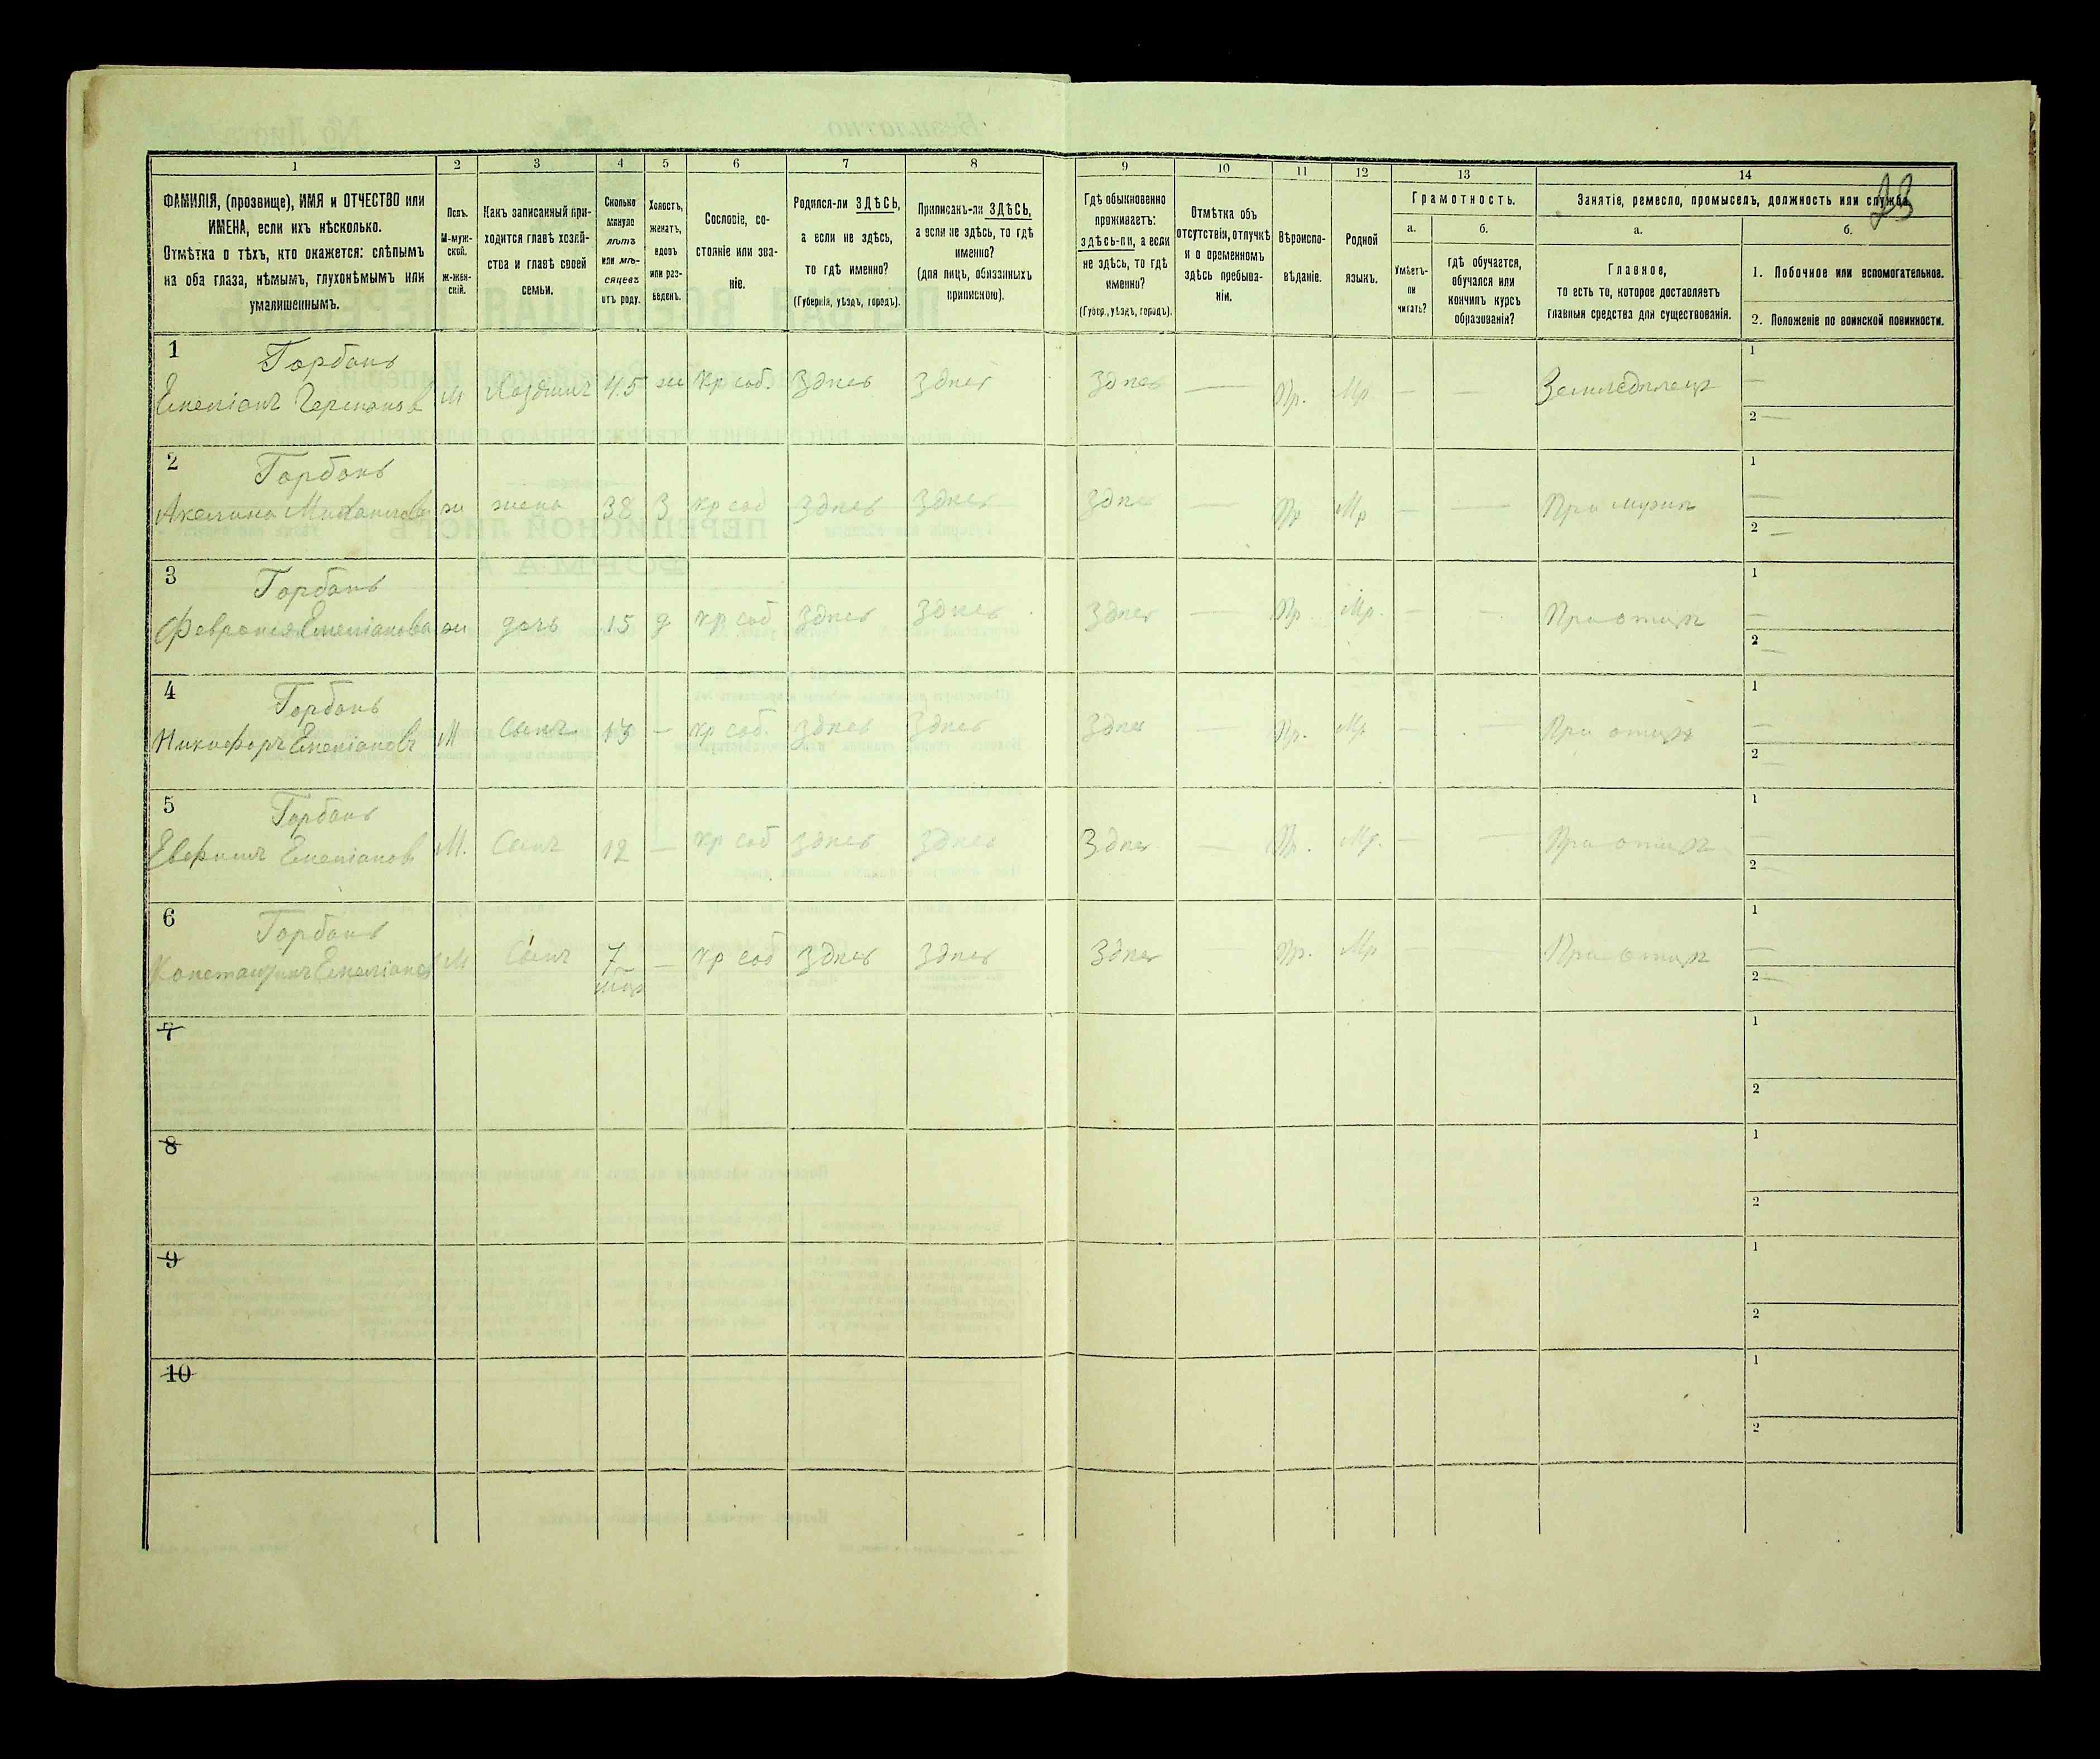 23
1 2 3 4 5 6 7 8 9 10 11 12 13 14
ФАМИЛІЯ, (прозвище), ИМЯ и ОТЧЕСТВО или
ИМЕНА, если ихъ нѣсколько.
Отмѣтка о тѣхъ, кто окажется: слѣпымъ
на оба глаза, нѣмымъ, глухонѣмымъ или
умалишеннымъ.
Полъ.
М-муж-
ской.
ж-жен-
скій.
Какъ записанный при-
ходится главѣ хозяй-
ства и главѣ своей
семьи.
Сколько
минуло
лѣтъ
или мѣ-
сяцевъ
отъ роду.
Холостъ,
женатъ,
вдовъ
или раз-
веденъ.
Сословіе, со-
стояніе или зва-
ніе.
Родился-ли ЗДѢСЬ,
а если не здѣсь,
то гдѣ именно?
(Губернія, уѣздъ, городъ).
Приписанъ-ли ЗДѢСЬ,
а если не здѣсь, то гдѣ
именно?
(для лицъ, обязанныхъ
припискою).
Гдѣ обыкновенно
проживаетъ:
здѣсь-ли, а если
не здѣсь, то гдѣ
именно?
(Губер., уѣздъ, городъ).
Отмѣтка объ
отсутствіи, отлучкѣ
и о временномъ
здѣсь пребыва-
ніи.
Вѣроиспо-
вѣданіе.
Родной
языкъ.
Грамотность.
а.
Умѣетъ-
ли
читать?
б.
гдѣ обучается,
обучался или
кончилъ курсъ
образованія?
Занятіе, ремесло, промыселъ, должность или служба.
а.
Главное,
то есть то, которое доставляетъ
главныя средства для существованія.
б.
1. Побочное или вспомогательное.
2. Положеніе по воинской повинности.
1 Горбань
Емеліанъ Германов М Хозяинъ 45 ж кр соб. Здѣсь Здѣсь Здѣсь — Пр. Мр. — — Земледѣлецъ 1 — 2 —
2 Горбань
Акелина Михаилова ж жена 38 З кр соб Здѣсь Здѣсь Здѣсь — Пр Мр — — При мужѣ 1 — 2 —
3 Горбань
Феврония Емеліанова ж дочь 15 д кр соб Здѣсь Здѣсь Здѣсь — Пр. Мр. — — При отцѣ 1 — 2 —
4 Горбань
Никифоръ Емеліановъ М Сынъ 13 — кр соб. Здѣсь Здѣсь Здѣсь — Пр. Мр — — При отцѣ 1 — 2 —
5 Горбань
Евфимъ Емеліанов М. Сынъ 12 — кр соб Здѣсь Здѣсь Здѣсь — Пр. Мр. — — При отцѣ 1 — 2 —
6 Горбань
Константинъ Емеліанов М Сынъ 7 — кр соб Здѣсь Здѣсь Здѣсь Пр. Мр — — При отцѣ 1 — 2 —
7 1 2
8 1 2
9 1 2
10 1 2